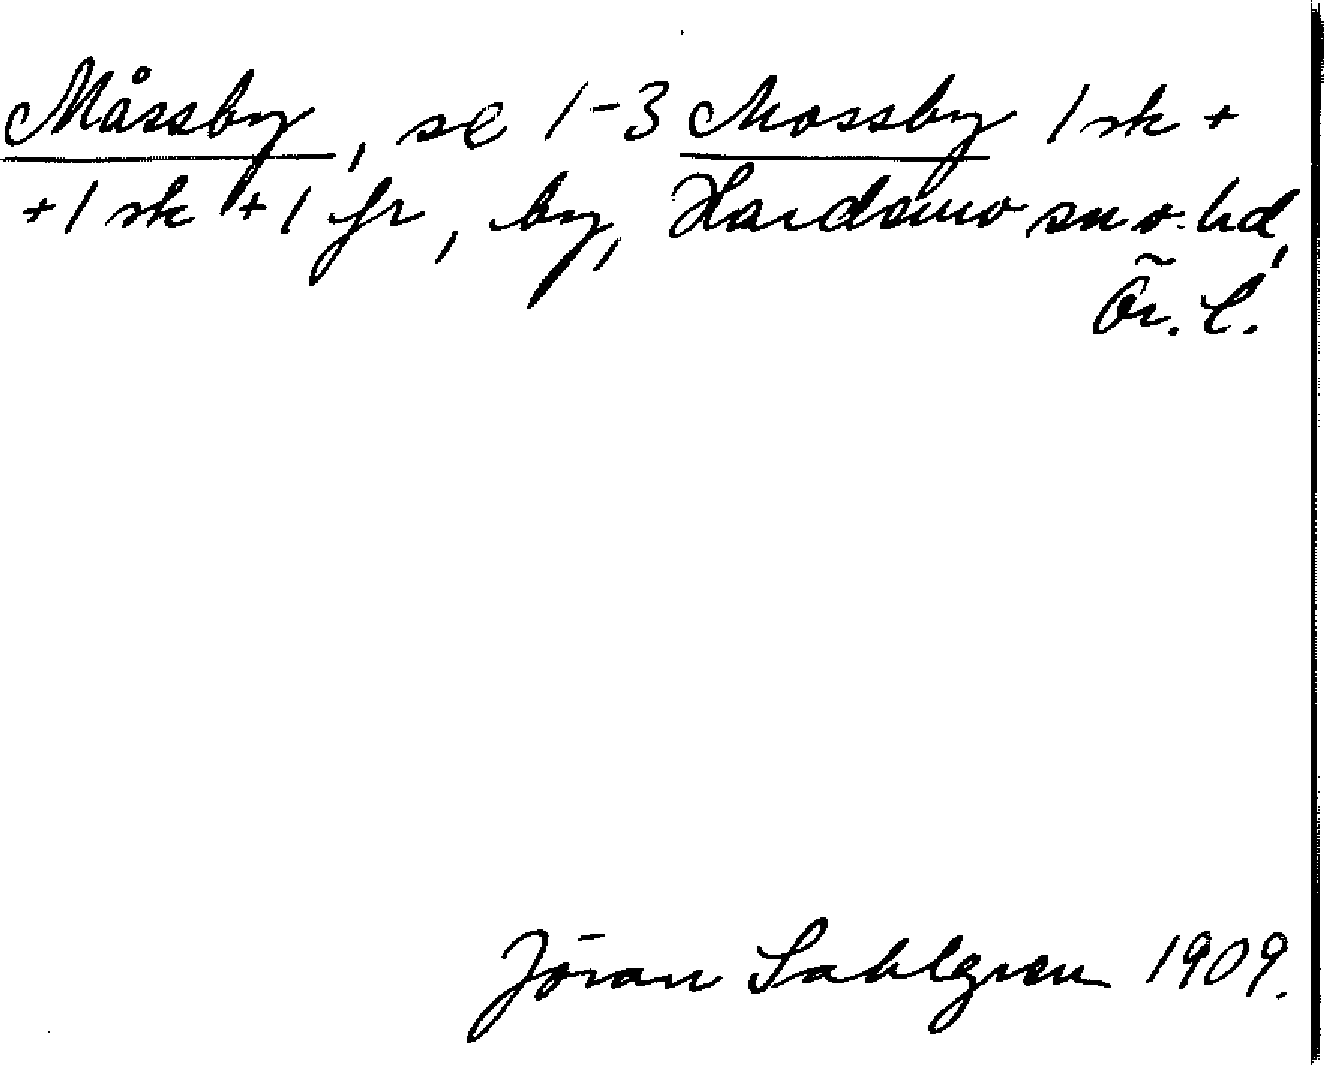 Måssby, se 1-3 Mossby 1 sk +
+ 1 sk + 1 fr, by, Hardemo sn o. hd,
Ör. l.
Jöran Sahlgren 1909.